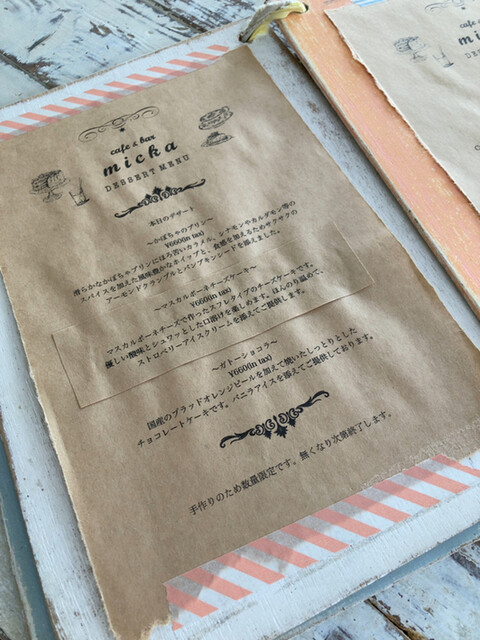 cafe & bar
micka
DESSERT MENU
本日のデザート
～かぼちゃのプリン～
¥660(in tax)
滑らかなかぼちゃプリンにほろ苦いカラメル、シナモンやカルダモン等の
スパイスを加えた風味豊かなホイップと、食感を加えるためサクサクの
アーモンドクランブルとパンプキンシードを添えました。
～マスカルポーネチーズケーキ～
¥660(in tax)
マスカルポーネチーズで作ったスフレタイプのチーズケーキです。
優しい酸味とシュワッとした口溶けを楽しめます。ほんのり温めて、
ストロベリーアイスクリームを添えてご提供します。
～ガトーショコラ～
¥660(in tax)
国産のブラッドオレンジピールを加えて焼いたしっとりとした
チョコレートケーキです。バニラアイスを添えてご提供しております。
手作りのため数量限定です。無くなり次第終了します。
cafe & b
mi
DESSE